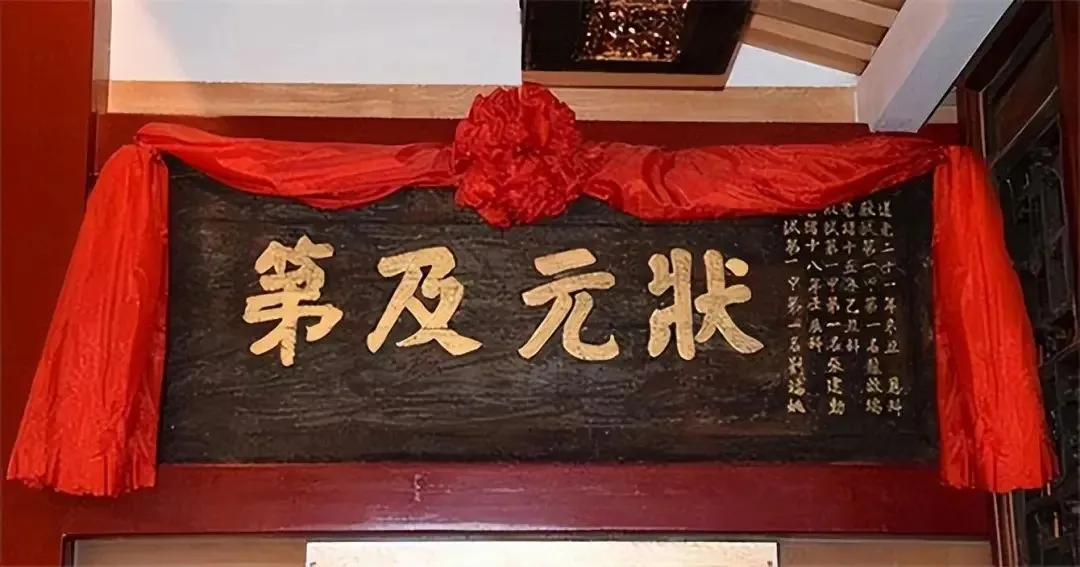 道光二十一年辛丑恩科
殿試第一甲第一名龍啟瑞
光緒十五年己丑科
殿試第一甲第一名張建勳
光緒十八年壬辰科
試第一甲第一名劉福姚
狀元及第